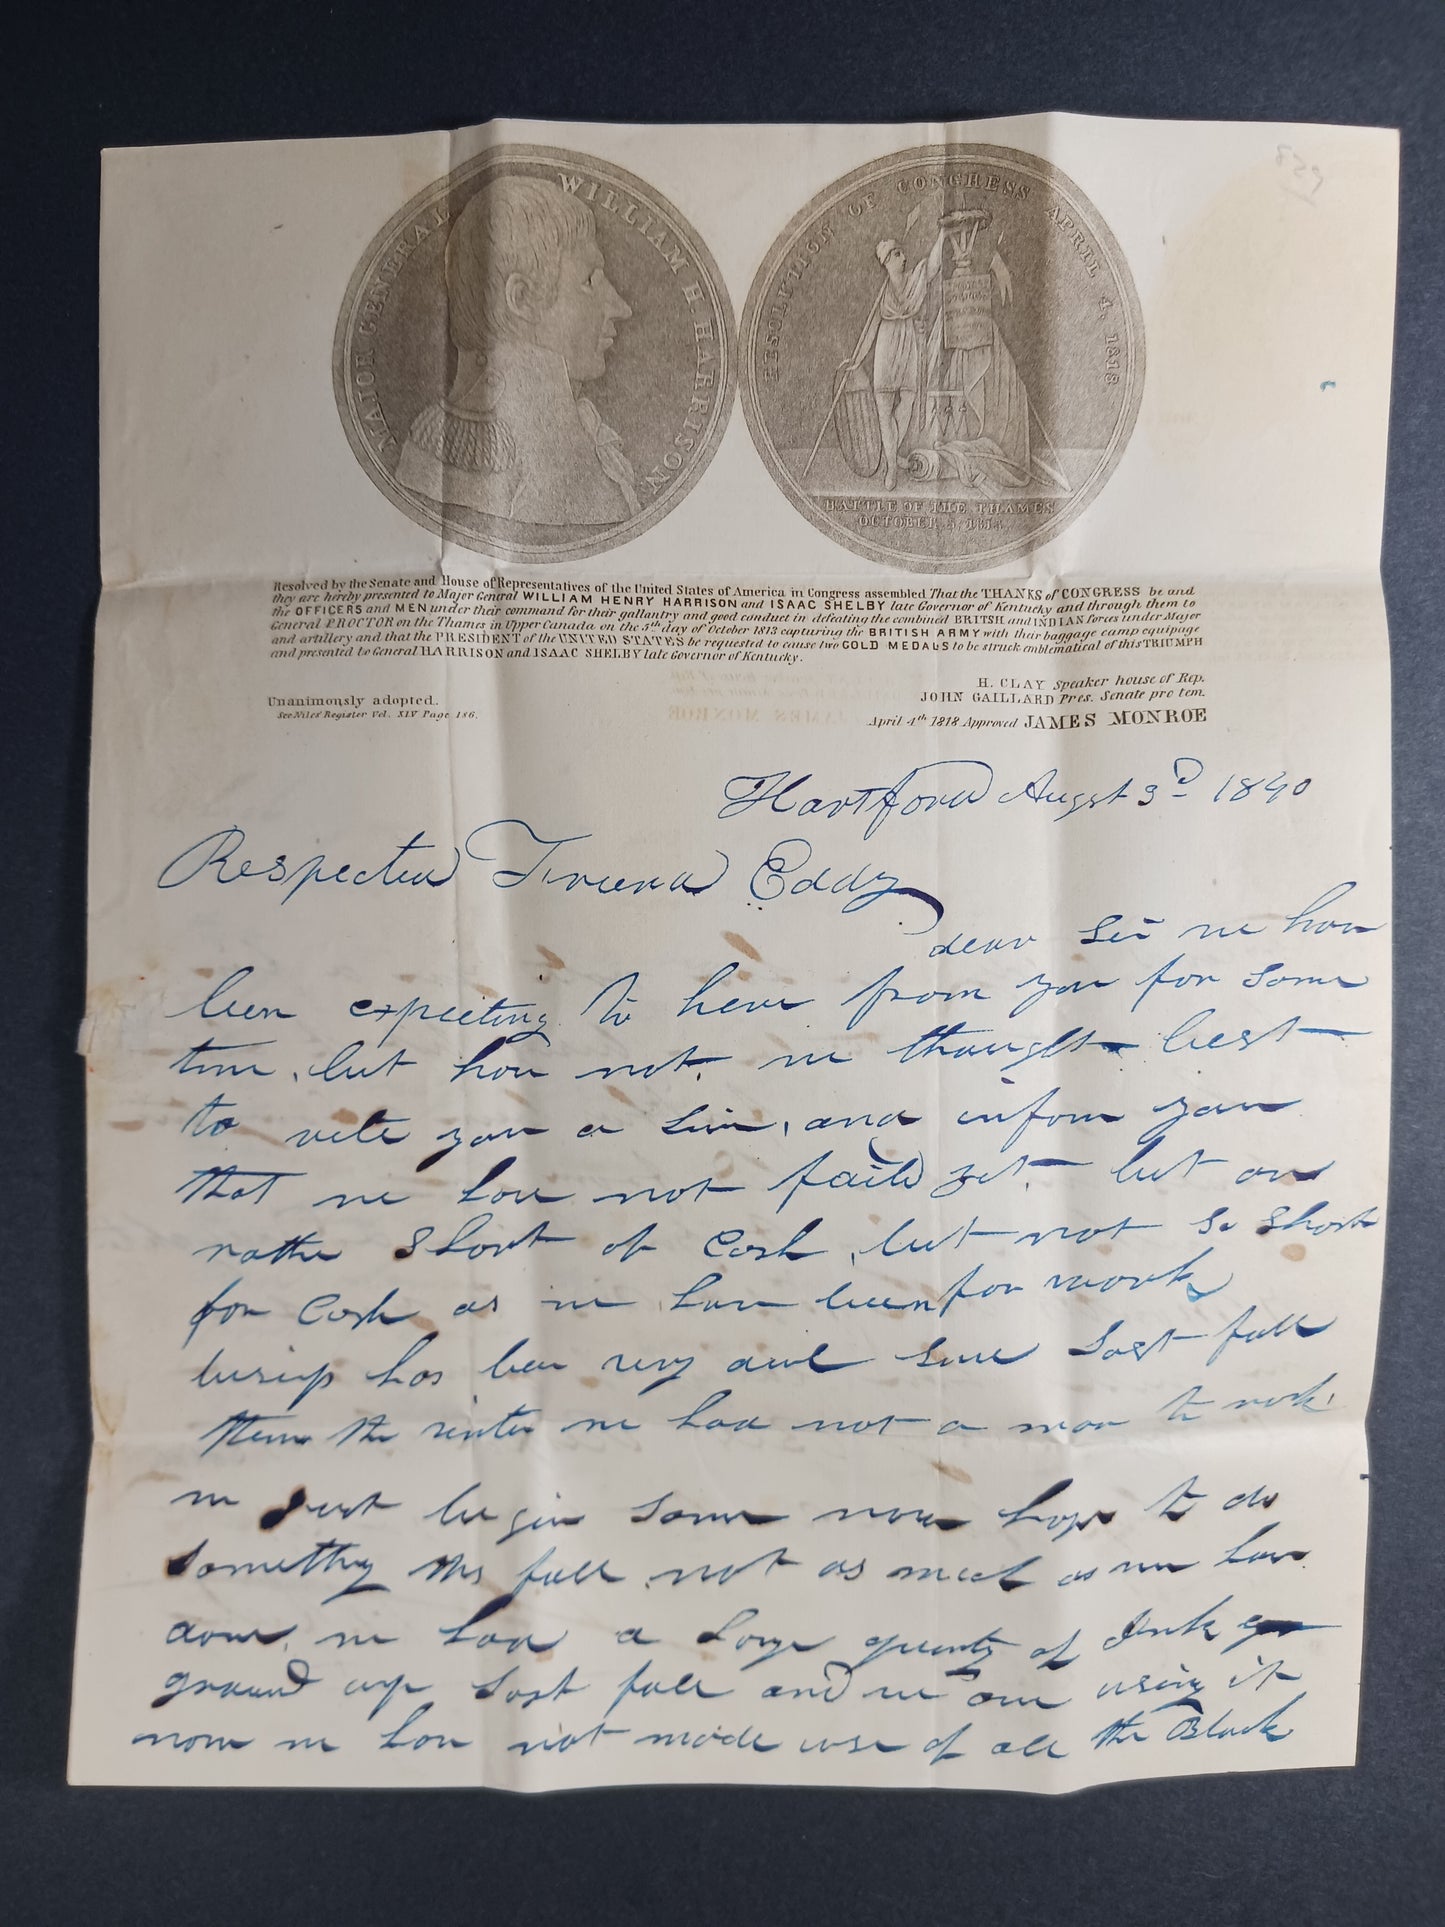 MAJOR GENERAL WILLIAM H. HARRISON
RESOLUTION OF CONGRESS APRIL 4, 1818
BATTLE OF THE THAMES
OCTOBER, 5, 1813.
Resolved by the Senate and House of Representatives of the United States of America in Congress assembled That the THANKS of CONGRESS be and
they are hereby presented to Major General WILLIAM HENRY HARRISON and ISAAC SHELBY late Governor of Kentucky and through them to
the OFFICERS and MEN under their command for their gallantry and good conduct in defeating the combined BRITSH and INDIAN forces under Major
General PROCTOR on the Thames in Upper Canada on the 5th day of October 1813 capturing the BRITISH ARMY with their baggage camp equipage
and artillery and that the PRESIDENT of the UNITED STATES be requested to cause two GOLD MEDALS to be struck emblematical of this TRIUMPH
and presented to General HARRISON and ISAAC SHELBY late Governor of Kentucky.
H. CLAY Speaker house of Rep.
Unanimously adopted.
JOHN GAILLARD Pres. Senate pro tem.
See Niles' Register Vol. XIV Page 186.
April 4th 1818 Approved JAMES MONROE
Hartford Augst 3D 1840
Respected Friend Eddy
dear Sir we have
been expecting to hear from you for some
time, but have not. we thought best
to rite you a line, and inform you
that we have not faild yet. but are
rather short of Cash, but not so short
for Cash as we have been for work
has been very dul since Last fall
the winter we had not a man to work.
we Just begin some now hope to do
something this fall not as much as we have
done. we had a Large quanty of Ink
ground up Last fall and we are using it
now we have not made use of all the Black